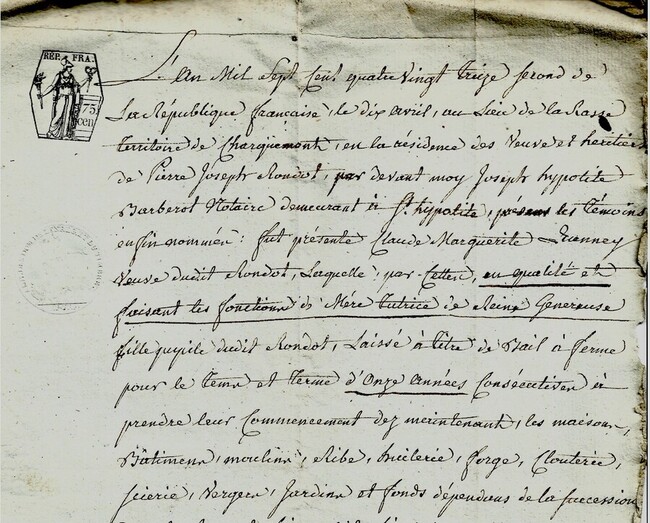 REP. FRA.
75
cen
L'An Mil Sept Cent quatre Vingt Treize second de
La République française, le dix avril, au Lieu de la Rasse
Territoire de Charquemont, en la résidence des Veuve et heritiers
de Pierre Joseph Rondot, par devant moy Joseph hypolite
Barberot Notaire demeurant à St. hypolite, présens les Témoins
enfin nommés: fut présente Claude Marguerite
Veuve dudit Rondot, Laquelle, par Cettes, en qualité et
faisant les fonctions de Mére Tutrice de Reine Genereuse
fille pupile dudit Rondot, Laissé à titre de Bail à ferme
pour le Tems et terme d'Onze années Consécutives à
prendre leur Commencement dez maintenant, les maisons,
Bâtimens, moulins, Ribe, huilerie, forge, Clouterie,
scierie, Vergers, Jardins et fonds dépendans de la succession